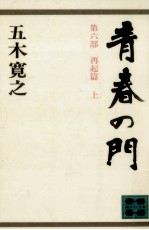 青春の門
第六部 再起篇 上
五木寛之